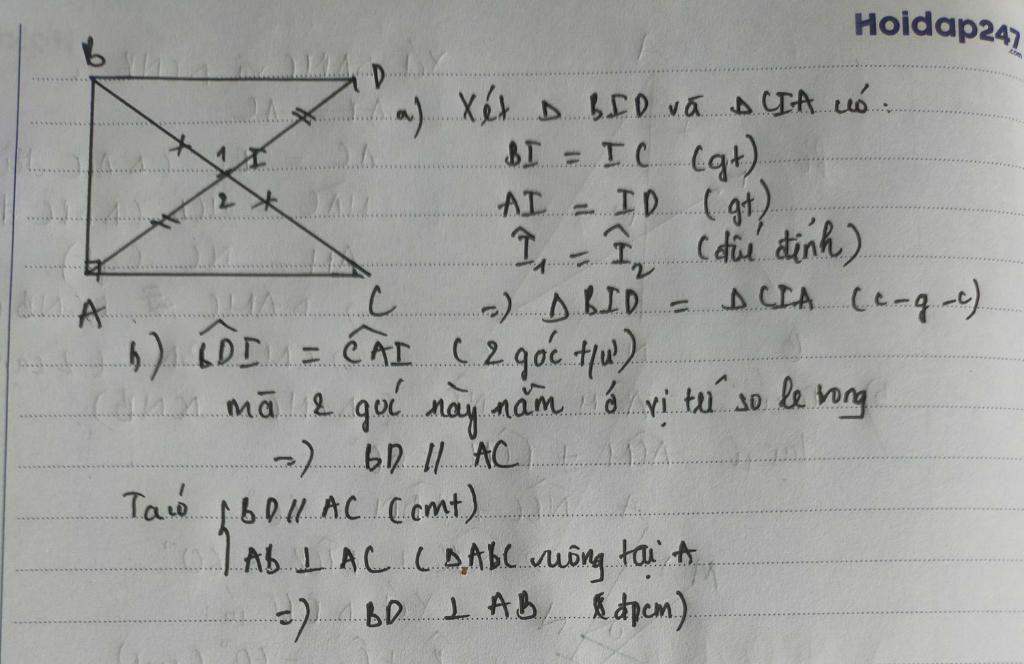 Hoidap247
.com
B
D
a) Xét Δ BID và Δ CIA có:
1 I
2
BI = IC (gt)
AI = ID (gt)
Î₁ = Î₂ (đối đỉnh)
A
C
=) Δ BID = Δ CIA (c-g-c)
b) BDI = CAI (2 góc t/ư)
mà 2 góc này nằm ở vị trí so le trong
=) BD // AC
Ta có { BD // AC (cmt)
AB ⊥ AC (ΔABC vuông tại A
=) BD ⊥ AB (đpcm)